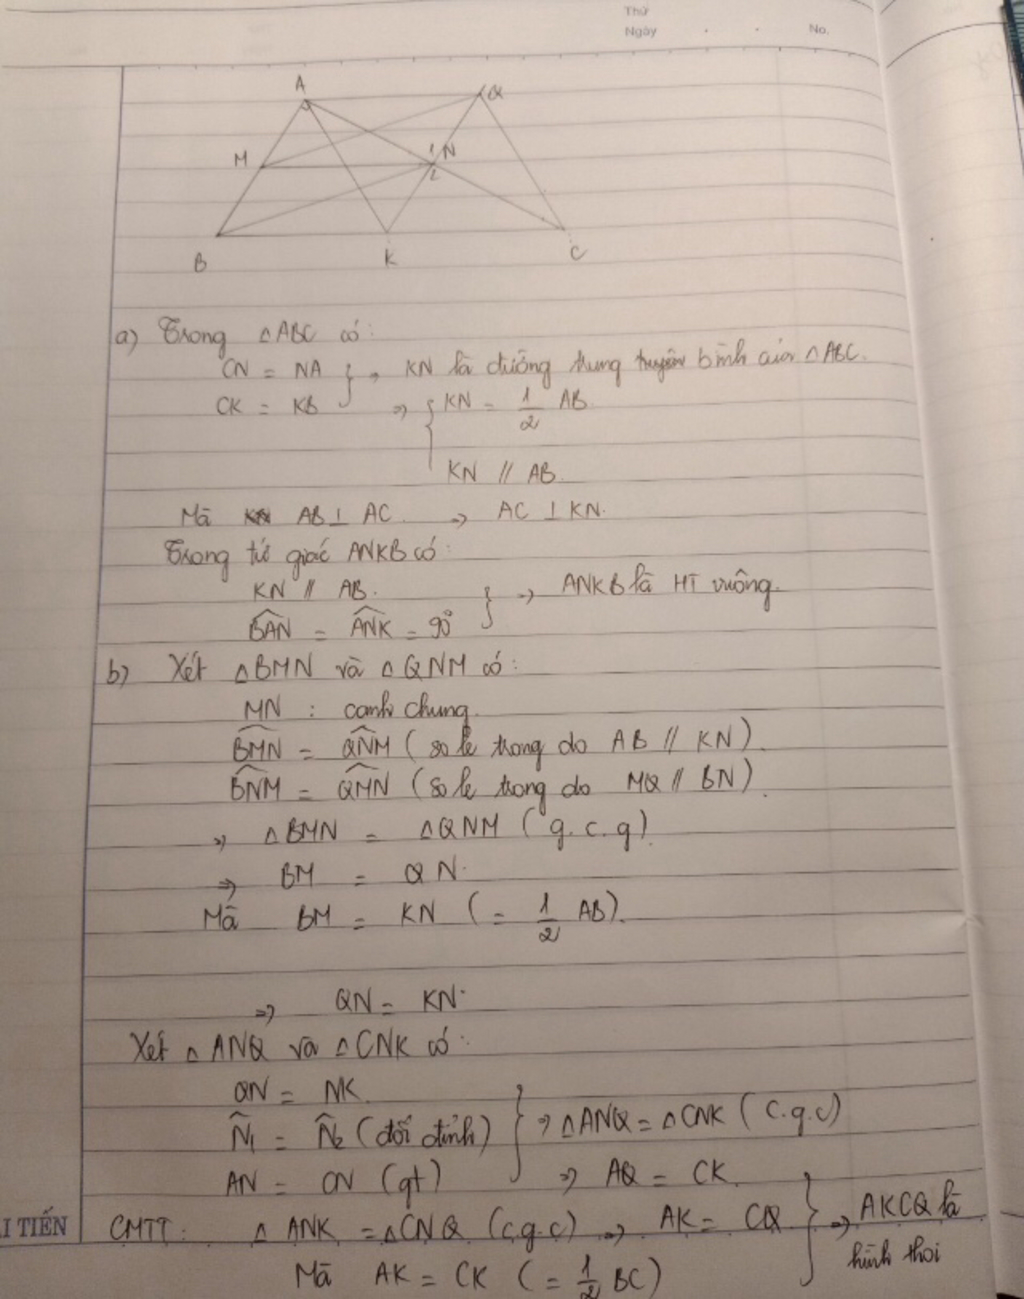 Thứ
Ngày . . No.
A Q
M 1 N
2
B K C
a) Trong △ABC có:
CN = NA } → KN là đường trung bình của △ABC.
CK = KB ⇒ { KN = 1/2 AB
KN // AB.
Mà AB ⊥ AC → AC ⊥ KN.
Trong tứ giác ANKB có:
KN // AB. } → ANKB là HT vuông.
BAN = ANK = 90°
b) Xét △BMN và △QNM có:
MN : cạnh chung.
BMN = QNM (so le trong do AB // KN).
BNM = QMN (so le trong do MQ // BN).
⇒ △BMN = △QNM (g.c.g)
⇒ BM = QN.
Mà BM = KN (= 1/2 AB).
⇒ QN = KN.
Xét △ANQ và △CNK có:
QN = NK
N1 = N2 (đối đỉnh) } → △ANQ = △CNK (c.g.c)
AN = CN (gt) ⇒ AQ = CK.
I TIẾN CMTT: △ANK = △CNQ (c.g.c) → AK = CQ } ⇒ AKCQ là
hình thoi
Mà AK = CK (= 1/2 BC)